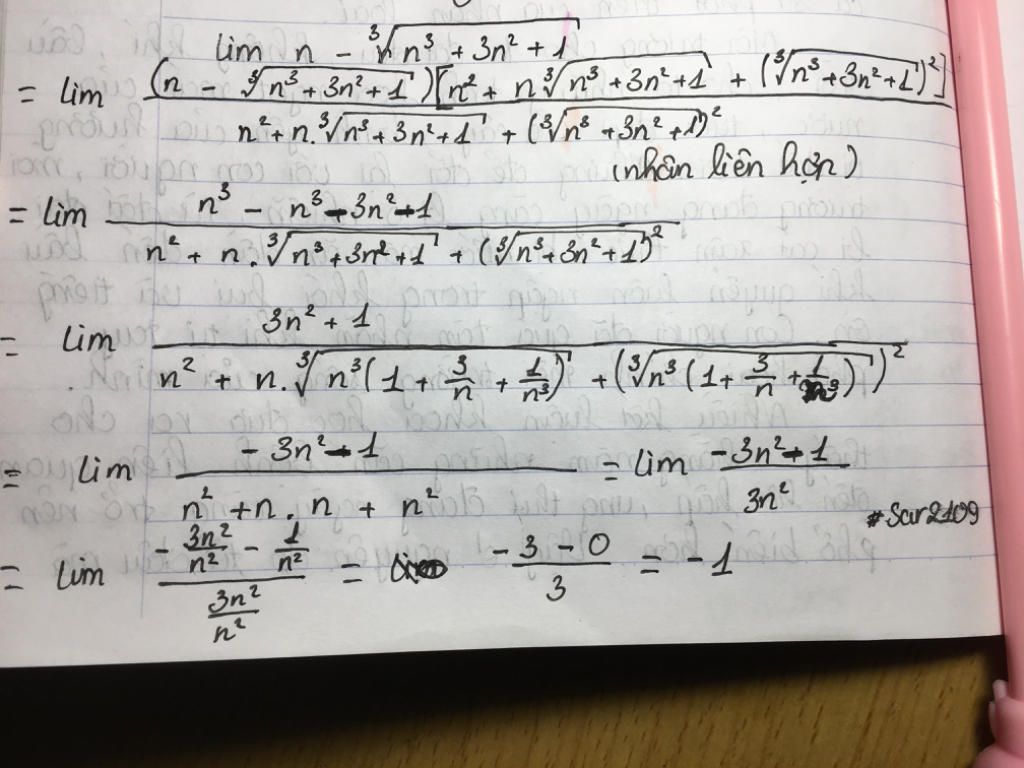 lim n - ∛(n³ + 3n² + 1)
= lim (n - ∛(n³ + 3n² + 1))[n² + n∛(n³ + 3n² + 1) + (∛(n³ + 3n² + 1))²] / (n² + n.∛(n³ + 3n² + 1) + (∛(n³ + 3n² + 1))²)
(nhân liên hợp)
= lim (n³ - n³ - 3n² - 1) / (n² + n.∛(n³ + 3n² + 1) + (∛(n³ + 3n² + 1))²)
= lim (3n² + 1) / (n² + n.∛(n³(1 + 3/n + 1/n³)) + (∛(n³(1 + 3/n + 1/n³)))²)
= lim (-3n² - 1) / (n² + n.n + n²) = lim (-3n² - 1) / (3n²)
#Scar2109
= lim (-3n²/n² - 1/n²) / (3n²/n²) = (-3 - 0) / 3 = -1